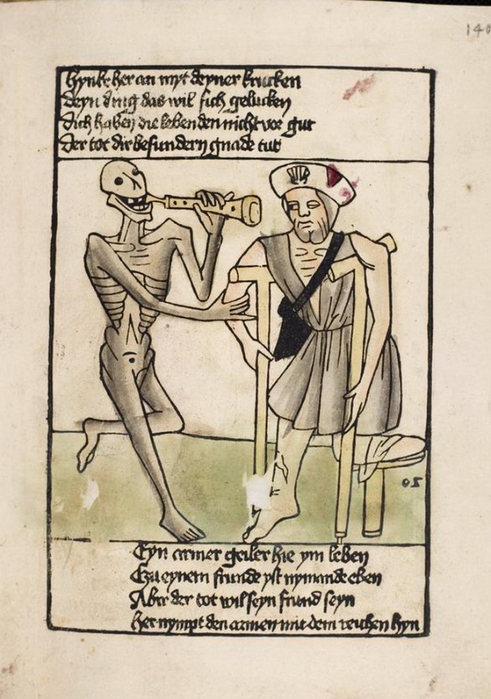 140
Hynke her an myt deyner krucken
Deyn ding das wil sich gelucken
Dich haben die lebenden nicht vor gut
Der tot dir besundern gnade tut
Eyn armer geiler hie ym leben
Czu eynem frunde yst nymande eben
Aber der tot wil seyn frund seyn
Her nympt den armen mit dem reichen hyn